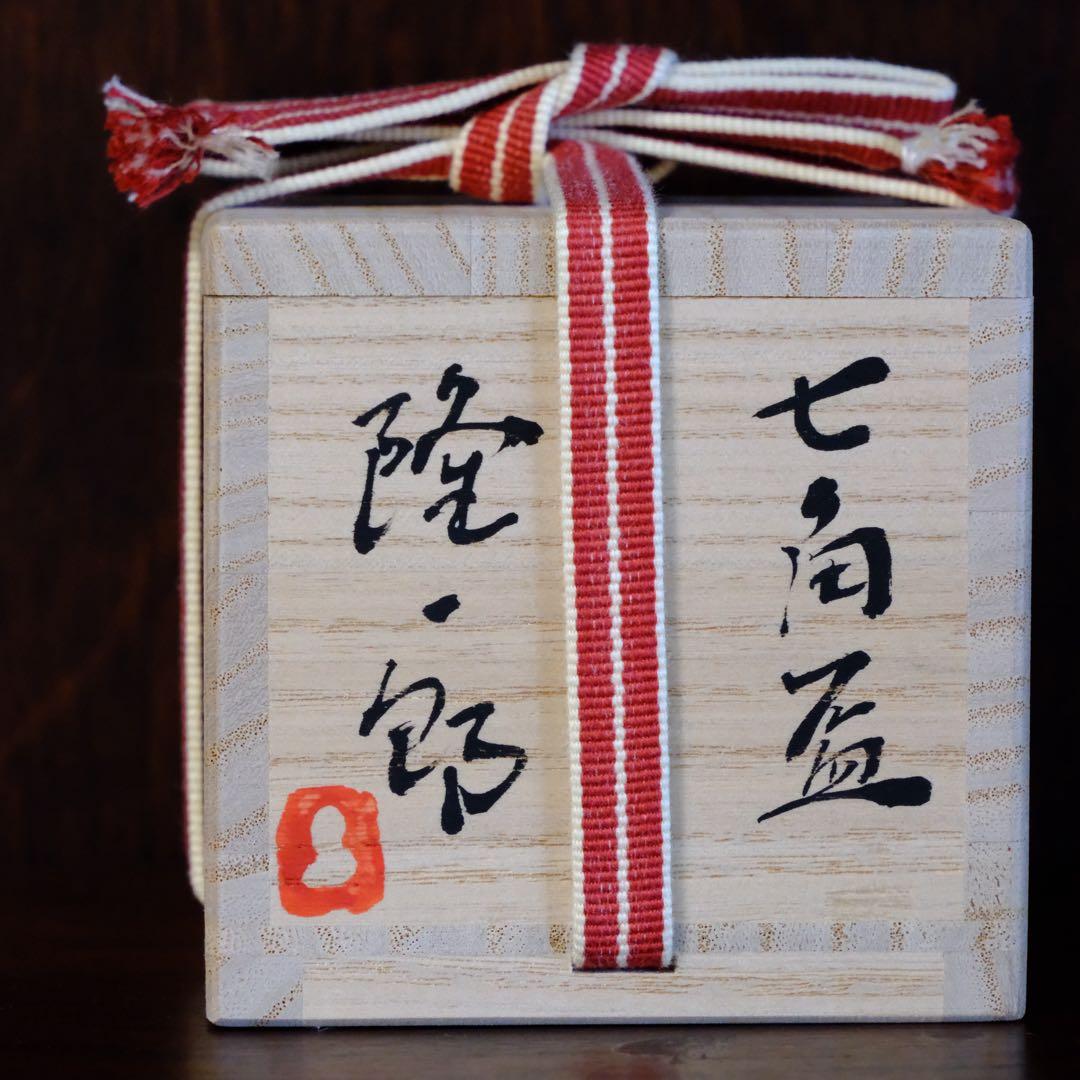 七角盃
隆一郎